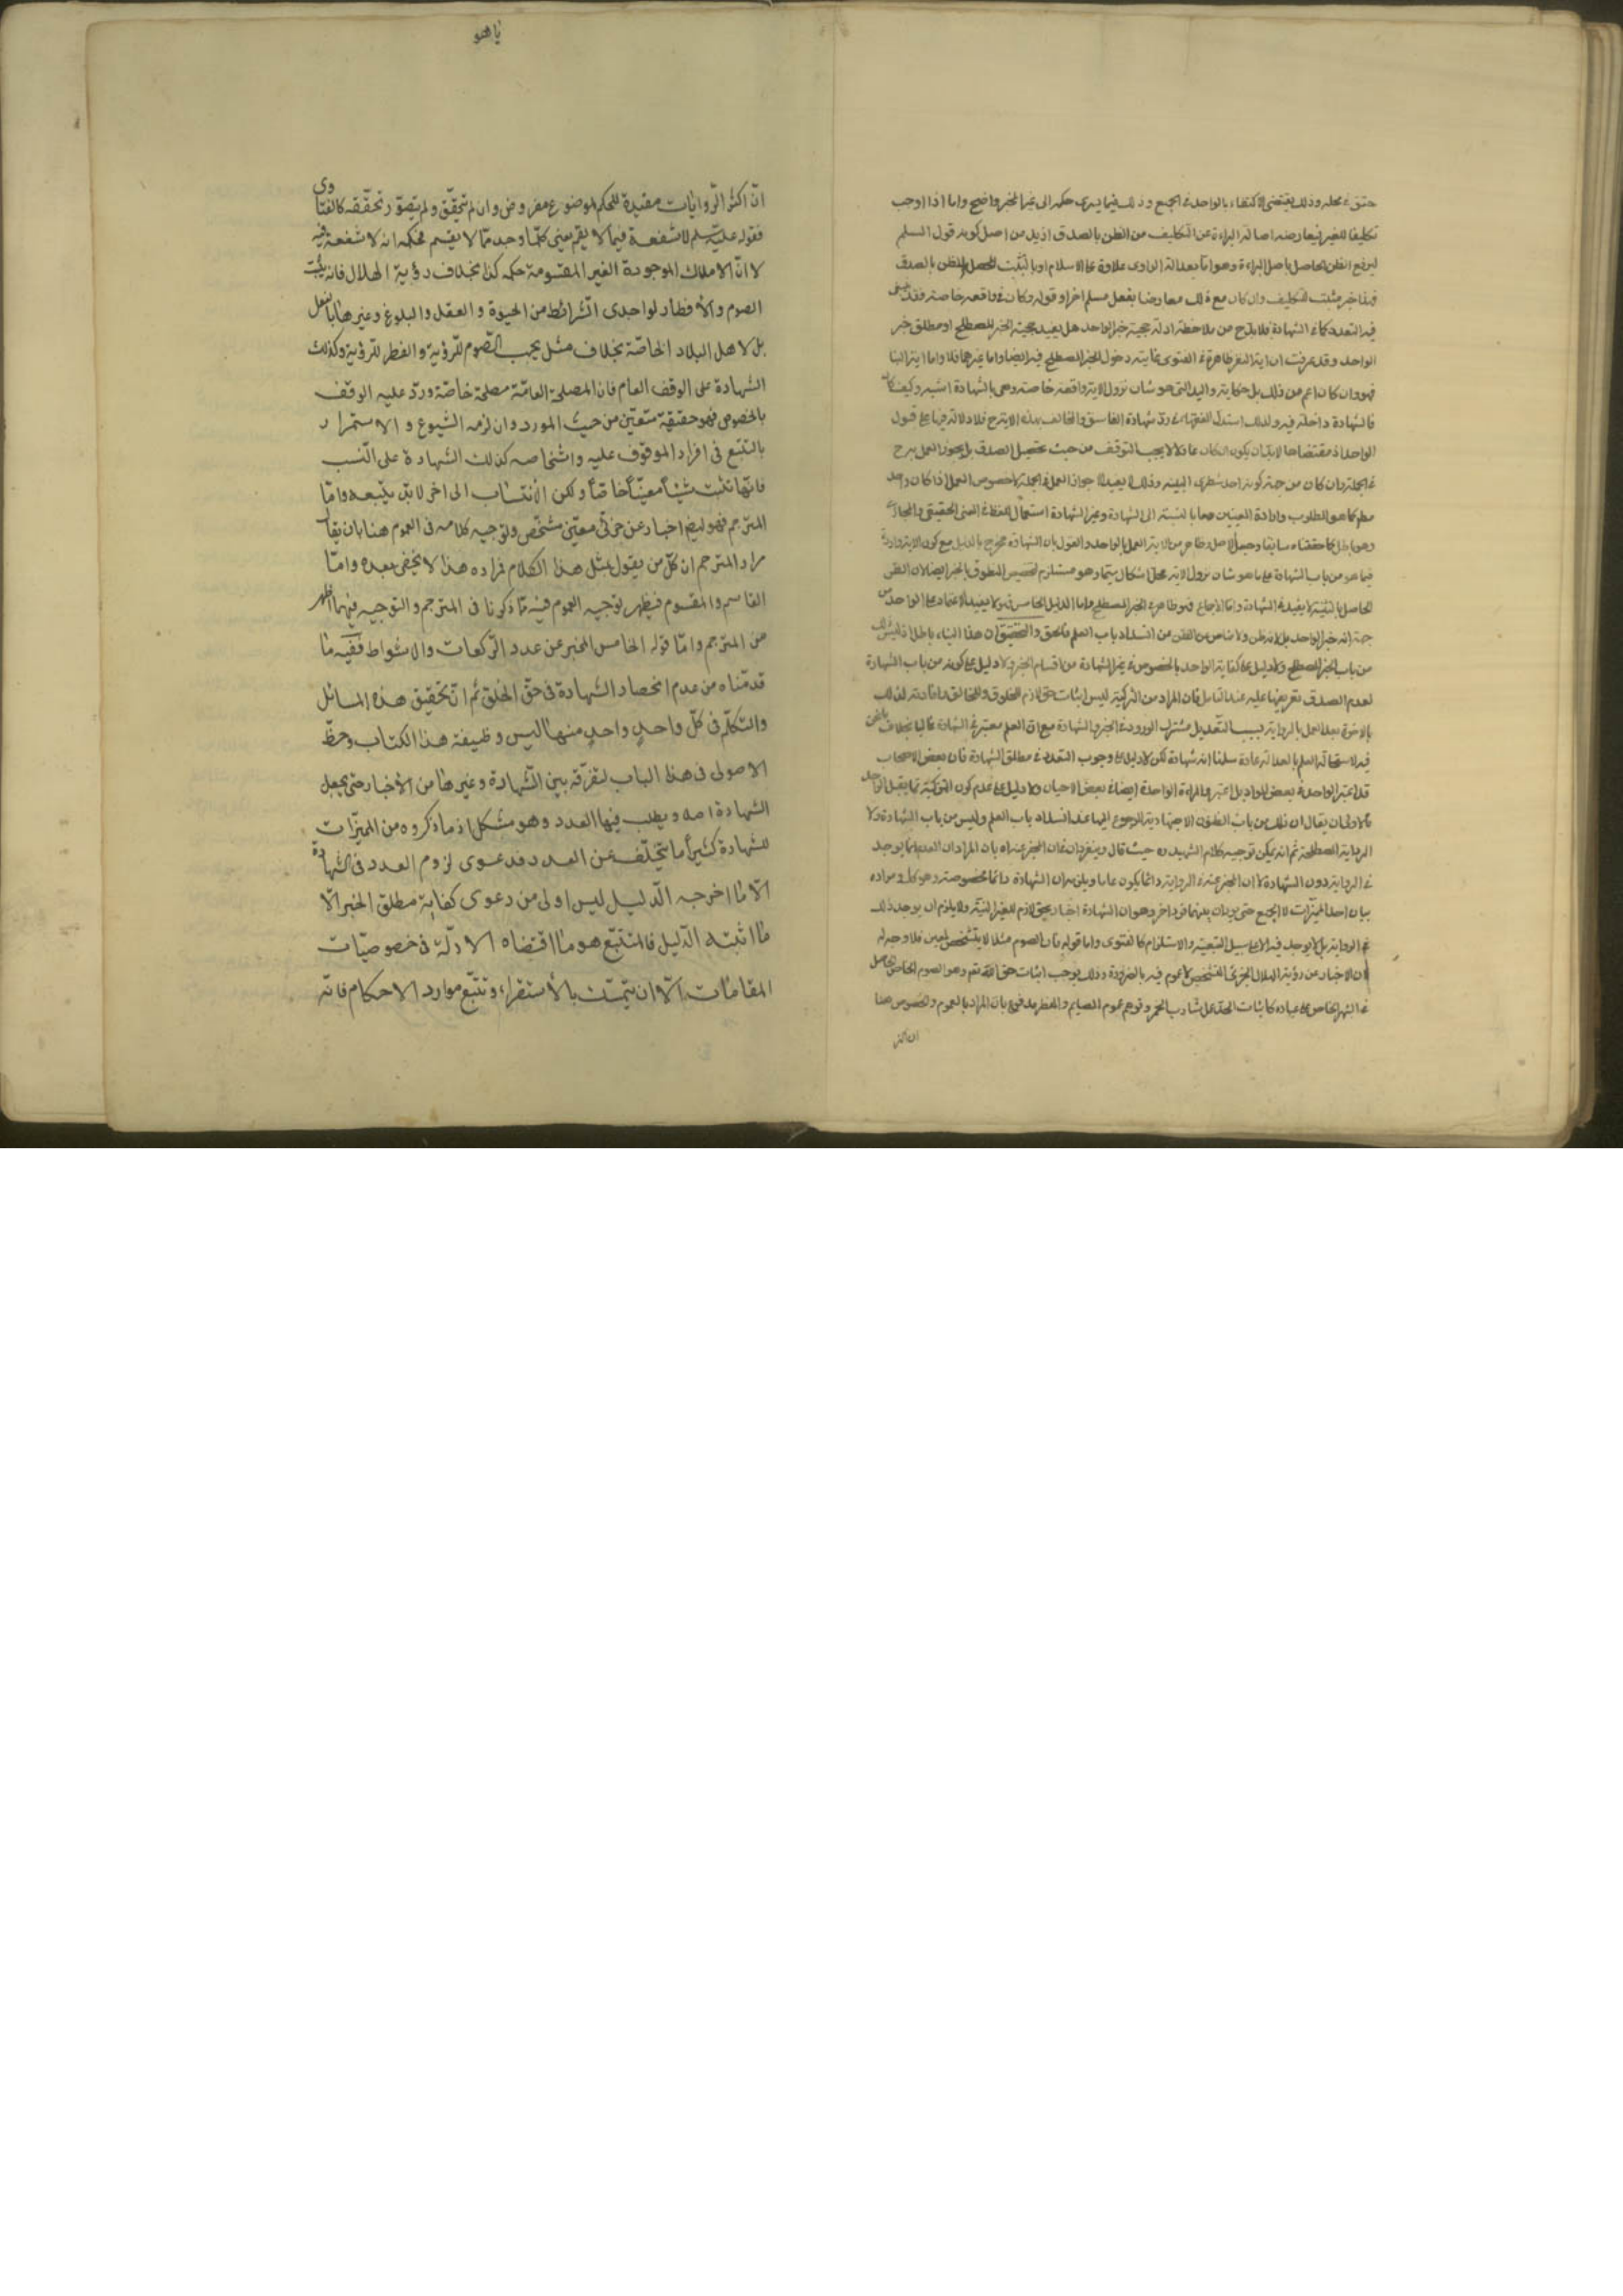 حتى في محله وذلك يقتضي الاكتفاء بالواحد في الجميع وذلك فيما يسري حكمه الى غير المخبر واضح واما اذا اوجب
تكليفا للغير فيعارضه اصالة البراءة عن التكليف من الظن بالصدق ازيد من اصل كونه قول المسلم
ليرفع الظن الحاصل باصل البراءة وهو اما بعدالة الراوي علاوة على الاسلام او بالتثبت المحصل للظن بالصدق
فهذا خبر مثبت للتكليف وان كان مع ذلك معارضا بفعل مسلم اخر او قوله وكان في واقعة خاصة فقد
فيه التعدد كما في الشهادة فلا بد ح من ملاحظة ادلة حجية خبر الواحد هل يفيد حجية الخبر المصطلح او مطلق خبر
الواحد وقد عرفت ان اية النفر ظاهرة في الفتوى غايته دخول الخبر المصطلح فيه ايضا واما غيرهما فلا واما اية النبا
فهو وان كان اعم من ذلك بل حكاية والوليد التي هو شان نزول الاية واقعة خاصة وهي بالشهادة اشبه وكيف كان
فالشهادة داخلة فيه ولذلك استدل الفقهاء في رد شهادة الفاسق والمخالف بهذه الاية ح فلا دلالة فيها على قبول
الواحد اذ مقتضاها لا بد ان يكون ان كان عادلا لا يجب التوقف من حيث تحصيل الصدق بل يجوز العمل به ح
في الجملة وان كان من جهة كونه احد شطري البينة وذلك لا يفيد الا جواز العمل في الجملة لا خصوص العمل اذا كان واحد
مطلقا كما هو المطلوب وارادة المعنيين معا بالنسبة الى الشهادة وغير الشهادة استعمال للفظ في المعنى الحقيقي والمجازي
وهو باطل كما حققناه سابقا وجعل الاصل وظاهر من الاية العمل بالواحد والقول بان الشهادة مخرج بالدليل مع كون الاية واردة
فيما هو من باب الشهادة على ما هو شان نزول الاية محل اشكال سيما وهو مستلزم لتخصيص المنطوق بالخبر ايضا لان الظن
الحاصل بالتثبت لا يفيد في الشهادة واما الاجماع فهو ظاهر في الخبر المصطلح واما الدليل الخامس فهو لا يفيد الاعتماد على الواحد من
جهة انه خبر الواحد بل لانه ظن ولا مناص من الظن من انسداد باب العلم والتحقيق ان هذا البناء باطل
من باب الخبر المصطلح ولا دليل على كفاية الواحد بالخصوص في غير الشهادة من اقسام الخبر ولا دليل على كونه من باب الشهادة
لعدم الصدق تعريفها عليه عند التامل فان المراد من التزكية ليس اثبات حق لازم للمخلوق وللخالق
بالاخرة بعد العمل بالرواية بسبب التعديل مشترك الورود في الخبر والشهادة مع ان العلم معتبر في الشهادة غالبا بخلاف
فيه لاستحالة العلم بالعدالة عادة سلمنا انه شهادة لكن لا دليل على وجوب التعدد في مطلق الشهادة فان بعض الاصحاب
قد اعتبر الواحد في بعض المواد بل اعتبروا المراة الواحدة ايضا في بعض الاحيان ولا دليل على عدم كون التزكية مما يقبل الواحد
فالاولى ان يقال ان ذلك من باب الظنون الاجتهادية المرجوع اليها عند انسداد باب العلم وليس من باب الشهادة ولا
الرواية المصطلحة ثم انه يمكن توجيه كلام الشهيد ره حيث قال وينفردان في ان المخبر عنه اه بان المراد ان العموم انما يوجد
في الرواية دون الشهادة لا ان المخبر عنه في الرواية دائما يكون عاما ويلزمه ان الشهادة دائما مخصوصة وهو كك ومراده
بيان احد المميزات لا الجميع حتى يورد ان بينهما فرق اخر وهو ان الشهادة اخبار بحق لازم للغير البتة ولا يلزم ان يوجد ذلك
في الرواية بل لا يوجد فيه الا على سبيل التبعية والاستلزام كالفتوى واما قوله فان الصوم مثلا لا يتشخص لمعين فلا وجه له
لان الاخبار من رؤية الهلال الجزئي المتشخص لا عموم فيه بالضرورة وذلك يوجب اثبات حق الله تعم وهو الصوم الخاص الحاصل
في الشهر الخاص على عباده كاثبات الحد على شارب الخمر وتوهم عموم الصايم والمفطر مدفوع بان المراد بالعموم والخصوص هنا
ان اكثر
يا هو
انّ اكثر الرّوايات مفيدة للحكم لموضوع مفروض وان لم يتحقّق ولم يتصوّر تحقّقه كالفتاوى
فقوله عليه السّلم لا شفعة فيما لا يقسم يعني كلّما وجد ممّا لا يقسم فحكمه انه لا شفعة فيه
لا انّ الاملاك الموجودة الغير المقسومة حكمه كذا بخلاف رؤية الهلال فانه يثبت
الصوم والأفطار لواجدى الشّرائط من الحيوة والعقل والبلوغ وغيرها بالفعل
بل لاهل البلاد الخاصّة بخلاف مثل يجب الصّوم للرّؤية والفطر للرّؤية وكذلك
الشهادة على الوقف العام فان المصلحة العامّة مصلحة خاصّة ورد عليه الوقف
بالخصوص فهو حقيقة متعيّن من حيث المورد وان لزمه الشيوع والاستمرار
بالتّتبع في افراد الموقوف عليه واشخاصه كذلك الشهادة على النّسب
فانّها تثبت شيئاً معيّناً خاصّاً ولكن الأنتساب الى اخر لابدّ يتبعه وامّا
المترجم فهو ايضا اخبار عن جزئي معيّن مشخّص وتوجيه كلامه في العموم هنا بان يقال
مراد المترجم ان كلّ من يقول بمثل هذا الكلام فمراده هذا لا يخفى بعده وامّا
القاسم والمقسوم فيظهر توجيه العموم فيه ممّا ذكرنا في المترجم والتوجيه فيهما اظهر
من المترجم وامّا قوله الخامس المخبر عن عدد الرّكعات والاشواط ففيه ما
قدمناه من عدم انحصار الشهادة في حقّ الخلق ثم انّ تحقيق هذه المسائل
والتكلّم في كلّ واحدٍ واحدٍ منها ليس وظيفة هذا الكتاب وحظّ
الاصولى في هذا الباب لتفرقه بين الشّهادة وغيرها من الأخبار حتى يجعل
الشهادة اصلا ويطلب فيها العدد وهو مشكل اذ ما ذكروه من المميّزات
للشهادة كثيراً ما يتخلّف عن العدد فدعوى لزوم العدد في الشهادة
الّا ما اخرجه الدّليل ليس اولى من دعوى كفاية مطلق الخبر الّا
ما اثبته الدّليل فالمتّبع هو ما اقتضاه الادلّة في خصوصيّات
المقامات الّا ان يتمسّك بالأستقراء وتتبّع موارد الاحكام فانّه